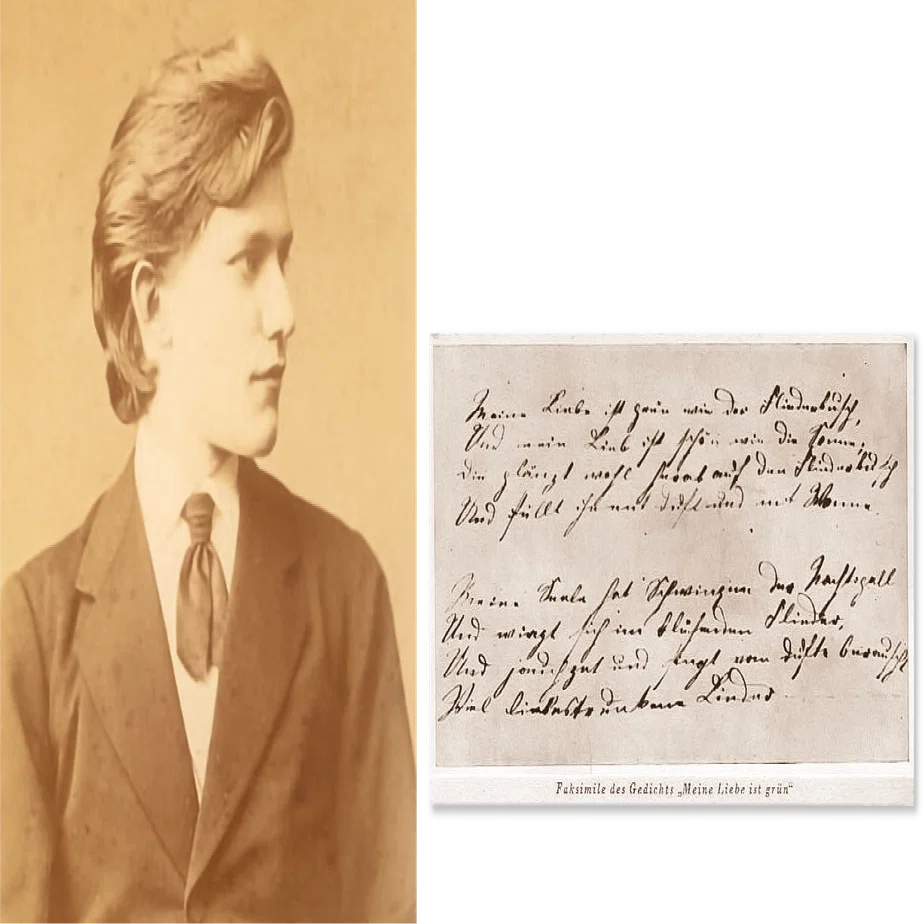 Meine Liebe ist grün wie der Fliederbusch,
Und mein Lieb ist schön wie die Sonne;
Die glänzt wohl herab auf den Fliederbusch
Und füllt ihn mit Duft und mit Wonne.
Meine Seele hat Schwingen der Nachtigall
Und wiegt sich im blühenden Flieder,
Und jauchzet und singt vom Dufte berauscht
Viel liebestrunkene Lieder
Faksimile des Gedichts „Meine Liebe ist grün“